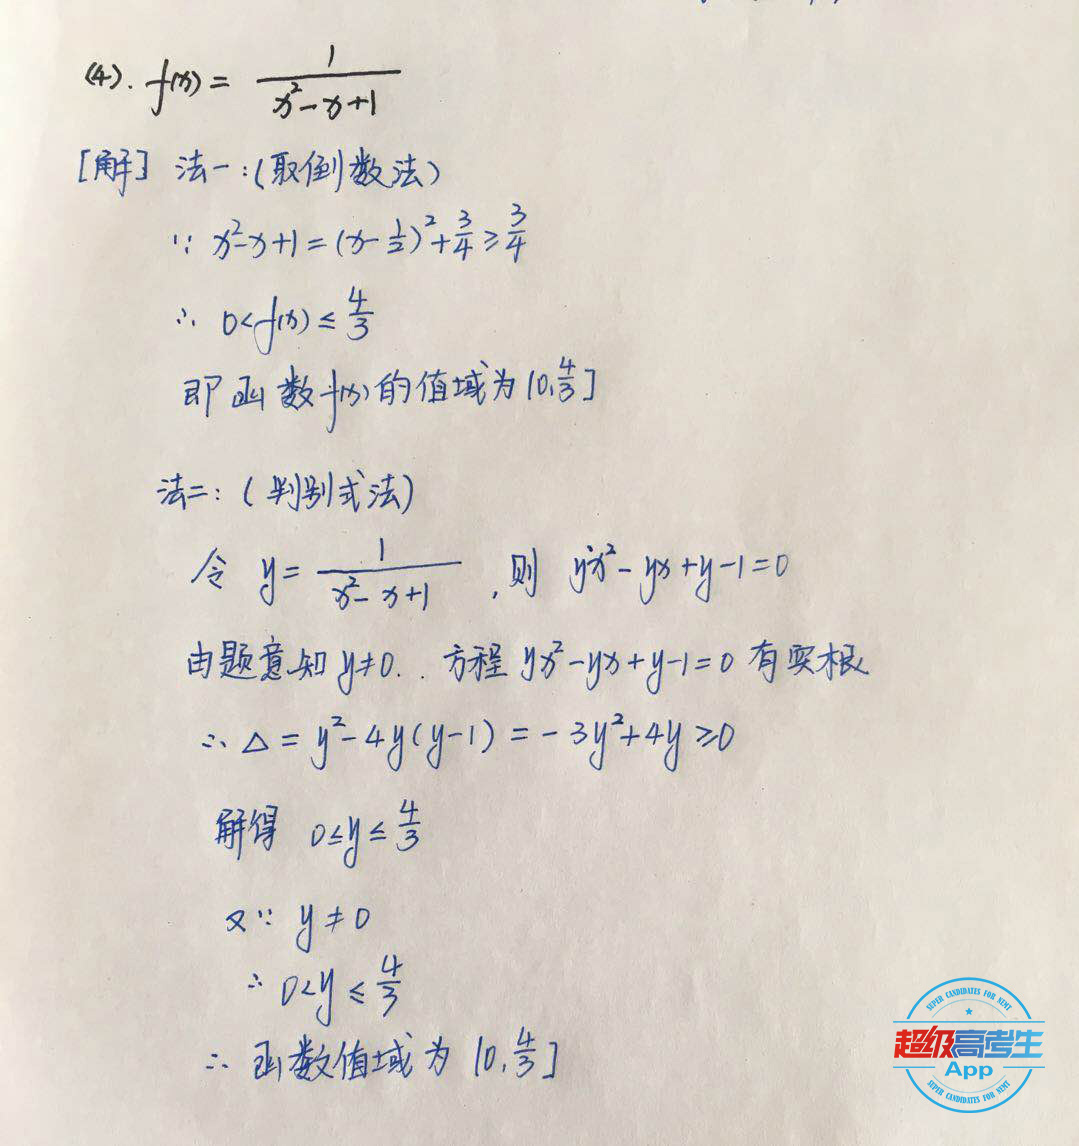 (4). f(x) = 1/(x²-x+1)
[解] 法一:(取倒数法)
∵ x²-x+1=(x-1/2)²+3/4≥3/4
∴ 0<f(x)≤4/3
即函数f(x)的值域为(0,4/3]
法二:(判别式法)
令 y=1/(x²-x+1),则 yx²-yx+y-1=0
由题意知y≠0. ∴方程yx²-yx+y-1=0有实根
∴ Δ=y²-4y(y-1)=-3y²+4y≥0
解得 0≤y≤4/3
又∵ y≠0
∴ 0<y≤4/3
∴ 函数值域为(0,4/3]
SUPER CANDIDATES FOR NEMT
超级高考生
App
SUPER CANDIDATES FOR NEMT